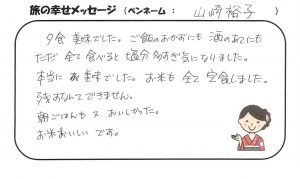 旅の幸せメッセージ（ペンネーム： 山崎裕子 ）
夕食 美味でした。ご飯のおかずにも 酒のあてにも
ただ 全て食べると塩分多すぎ気になりました。
本当に お美味でした。お米も 全て 完食しました。
残すなんてできません。
朝ごはんも 又 おいしかった。
お米おいしい です。